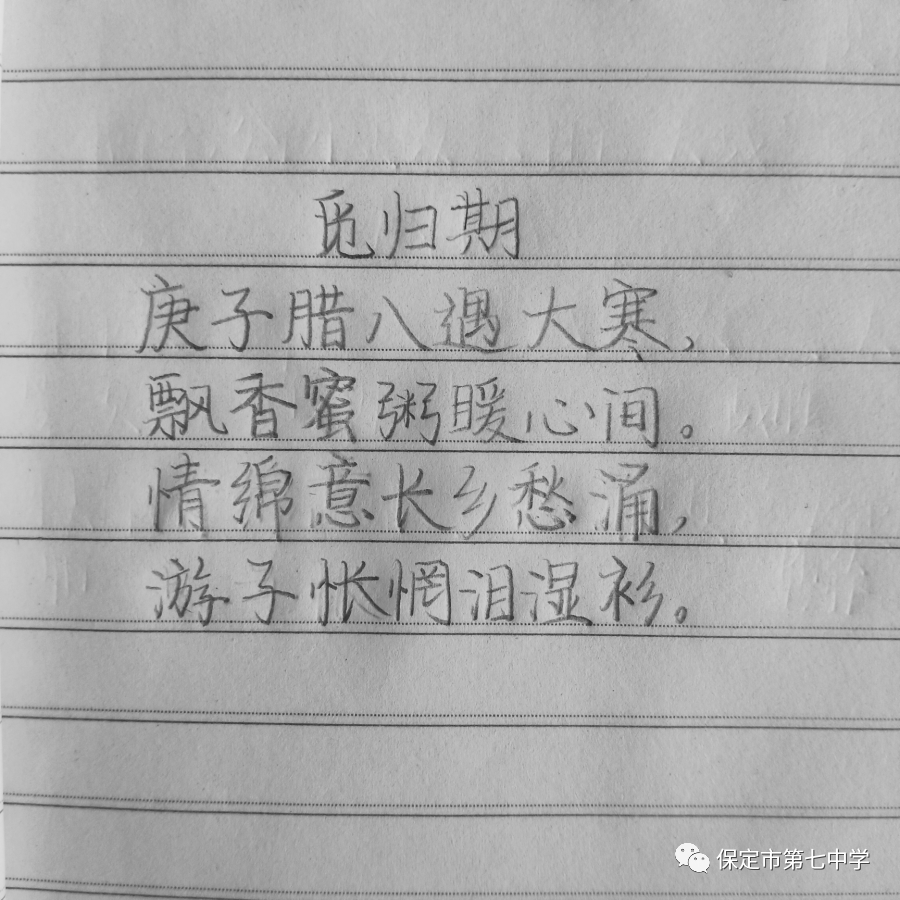 觅归期
庚子腊八遇大寒,
飘香蜜粥暖心间。
情绵意长乡愁涌,
游子怅惘泪湿衫。
保定市第七中学